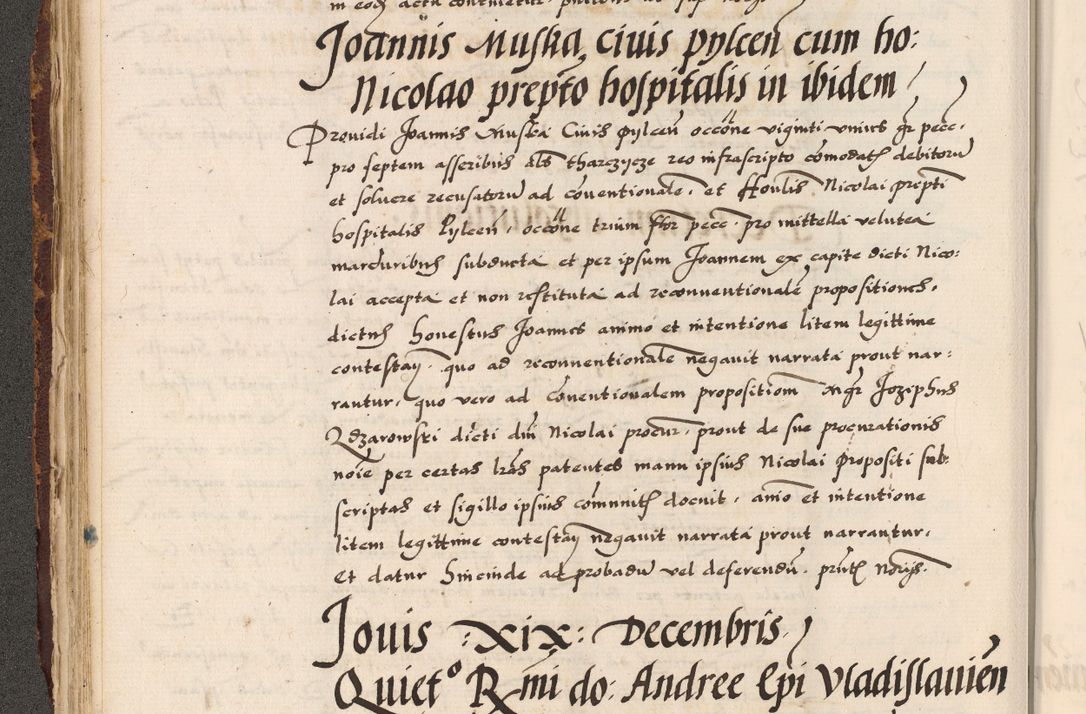 Joannis Muska, Ciuis pylcen cum ho:
Nicolao prepto hospitalis in ibidem
Prouidi Joannis Muska Ciuis pylcen occone viginti vnius gr pecc.
pro septem asseribus als tharczycze reo infrascripto comodat debitoru
et soluere recusatoru ad couentionale. et Honlis Nicolai prepti
hospitalis Pylcen. occone trium flor pecc. pro mittella velutea
marduribus subducta et per ipsum Joannem ex capite dicti Nico:
lai accepta et non restituta ad reconuentionale propositiones.
dictus honestus Joannes animo et intentione litem legittime
contestan. quo ad reconuentionale negauit narrata prout nar:
rantur. quo vero ad Couentionalem propositiom mgr Jozephus
Zdzarowski dicti dni Nicolai procur. prout de sue procurationis
noie per certas lras patentes manu ipsius Nicolai propositi sub
scriptas et sigillo ipsius comunit docuit. anio et intentione
litem legittime contestan negauit narrata prout narrantur.
Et datur hincinde ad probadu vel deferendu. pnt Norijs.
Jouis XIX: Decembris
Quiet Rmi do: Andree Epi Vladislauien